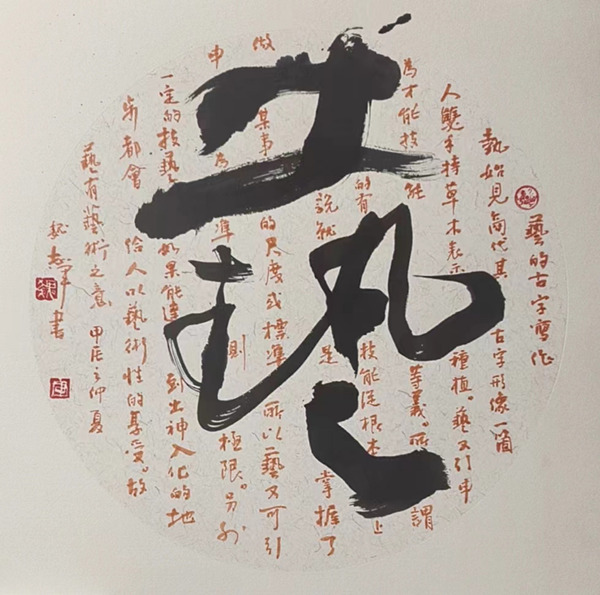 藝
藝的古字寫作
埶始見商代其古字形像一箇
人雙手持草木表示種植。藝又引申
為才能技能等義。所謂
的有技能從根本上
說就是掌握了
做某事的尺度或標準所以藝又可引
申為準則極限。另外
一定的技藝如果能達到出神入化的地
步都會給人以藝術性的享受。故
藝有藝術之意 甲辰之仲夏
魏志軍書